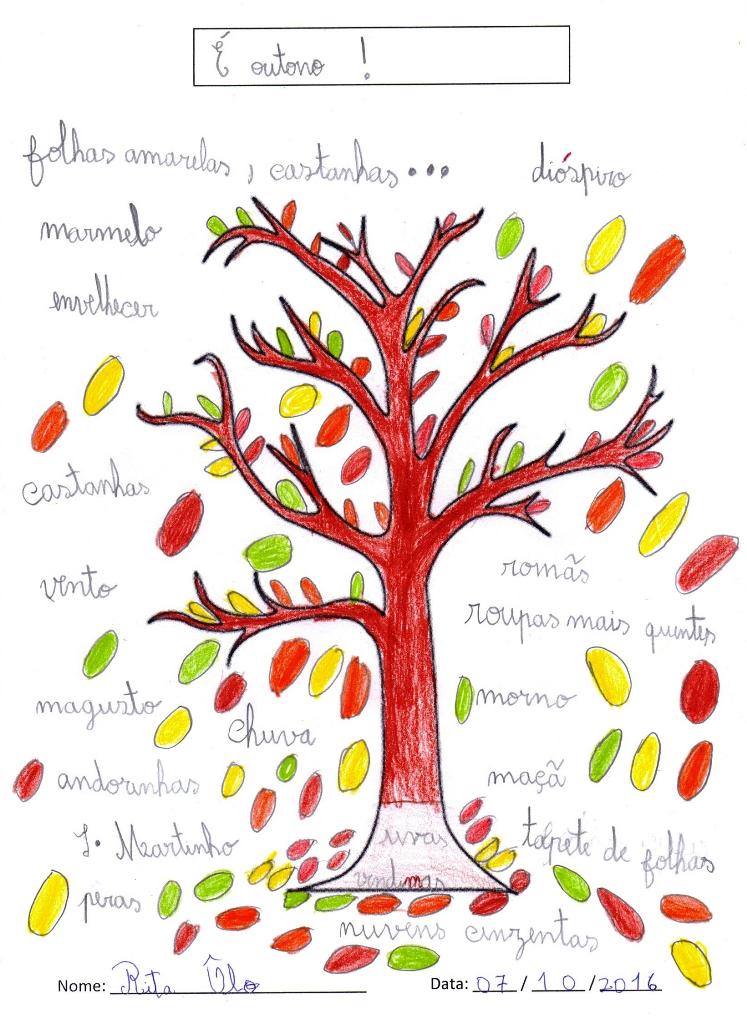 É outono !
folhas amarelas , castanhas...
dióspiro
marmelo
envelhecer
castanhas
vento
romãs
roupas mais quentes
magusto
morno
chuva
andorinhas
maçã
S. Martinho
uvas
tapete de folhas
peras
vindimas
nuvens cinzentas
Nome: Rita
Data: 07/10/2016